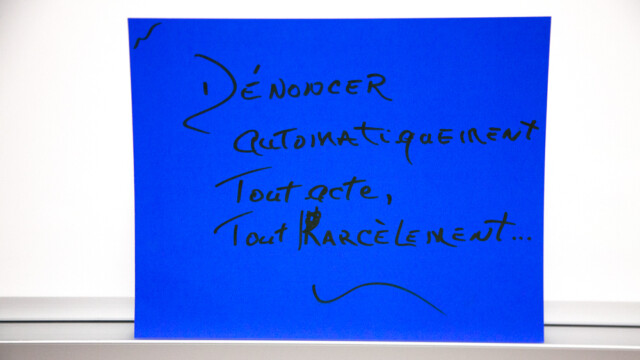 DÉNONCER
AUTOMATIQUEMENT
TOUT ACTE,
TOUT HARCÈLEMENT...